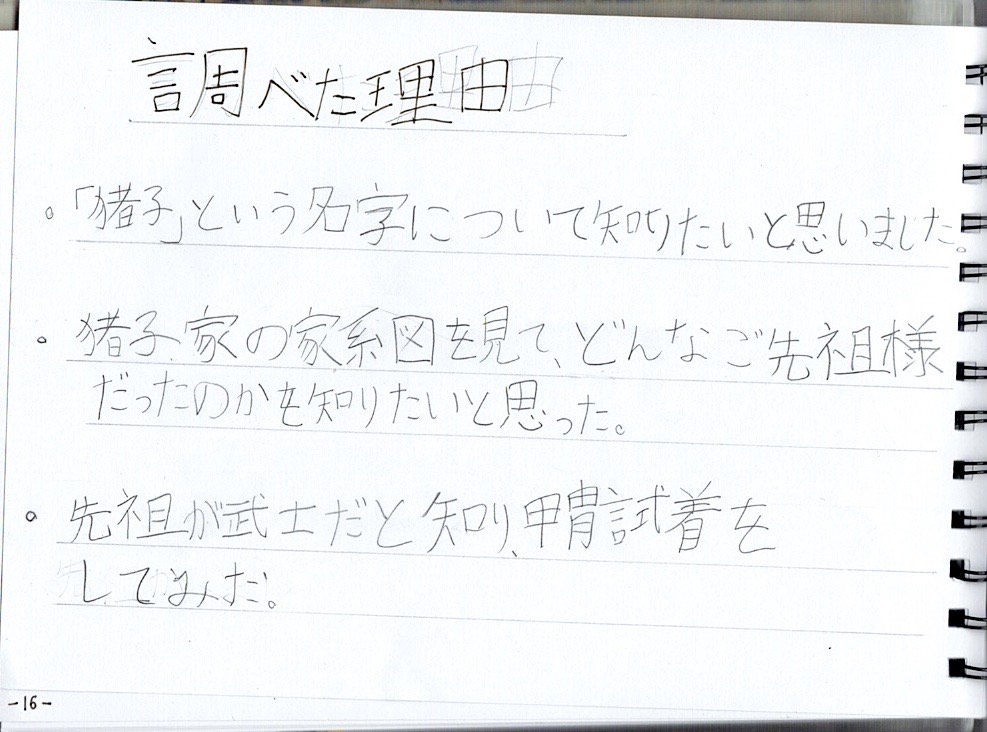 調べた理由
。「猪子」という名字について知りたいと思いました。
。猪子家の家系図を見て、どんなご先祖様
だったのかを知りたいと思った。
。先祖が武士だと知り、甲冑試着を
してみた。
-16-